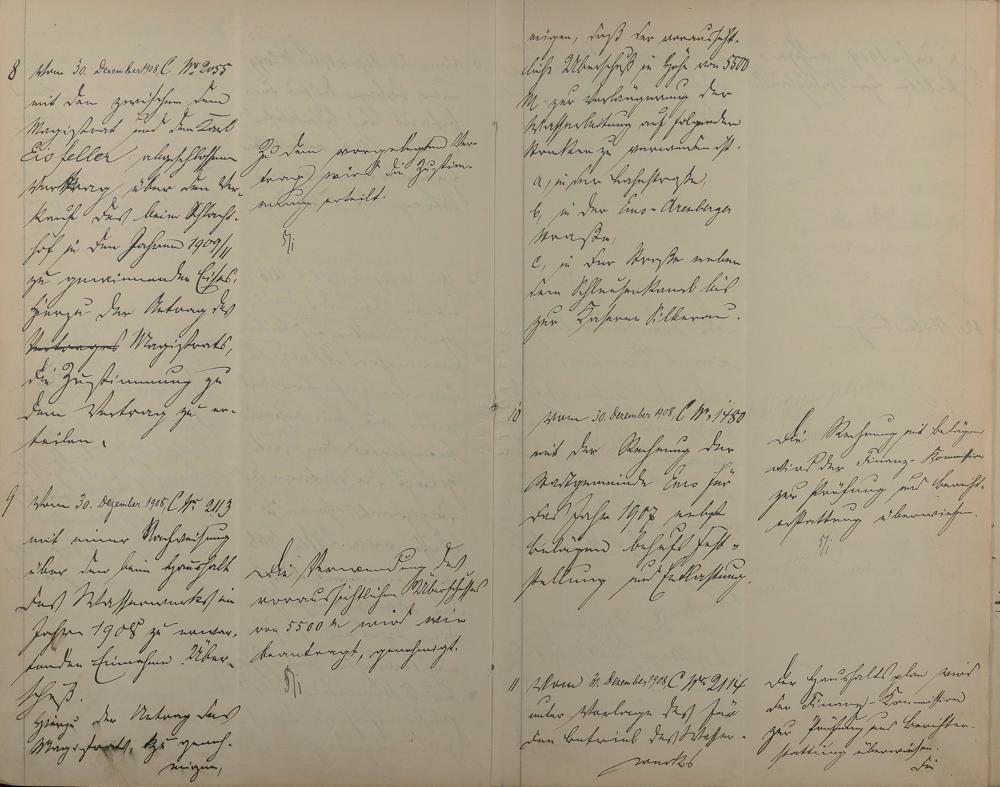 8 Vom 30. Dezember 1908, C Nr 2055
mit dem zwischen dem
Magistrat und dem Karl
Eisfeller abgeschlossenen
Vertrag, über den Ver-
kauf des beim Schlacht-
hof in den Jahren 1909/11
zu gewinnenden Eises.
Hierzu der Antrag des
Vertrages Magistrats,
die Zustimmung zu
dem Vertrag zu er-
teilen.
Zu dem vorgelegten Ver-
trag wird die Zustim-
mung erteilt.
5/1
9 Vom 30. Dezember 1908, C Nr 2113
mit einer Nachweisung
über den beim Haushalt
des Wasserwerks im
Jahre 1908 zu erwar-
tenden Einnahme Über-
schuß.
Hierzu der Antrag des
Magistrats, zu geneh-
migen,
Die Verwendung des
voraussichtlichen Überschusses
von 5500 M wird wie
beantragt, genehmigt.
5/1
migen, daß der voraussicht-
liche Überschuß in Höhe von 5500
M. zur Verlängerung der
Wasserleitung auf folgenden
Strecken zu verwenden ist.
a, in der Bahnstraße,
b, in der Ems-Arenberger
Straße,
c, in der Straße neben
dem Schleusenkanal bis
zur Kaserne Silberau.
10 Vom 30. Dezember 1908, C Nr. 1480
mit der Rechnung der
Stadtgemeinde Ems für
das Jahr 1907 nebst
Belägen behufs Fest-
stellung und Entlastung.
Die Rechnung mit Belägen
wird der Finanz-Kommission
zur Prüfung und Bericht-
erstattung überwiesen.
5/1
11 Vom 31. Dezember 1908, C Nr 2114
unter Vorlage des für
den Betrieb des Wasser-
werks
Der Haushaltsplan wird
der Finanz-Kommission
zur Prüfung und Berichter-
stattung überwiesen.
Die